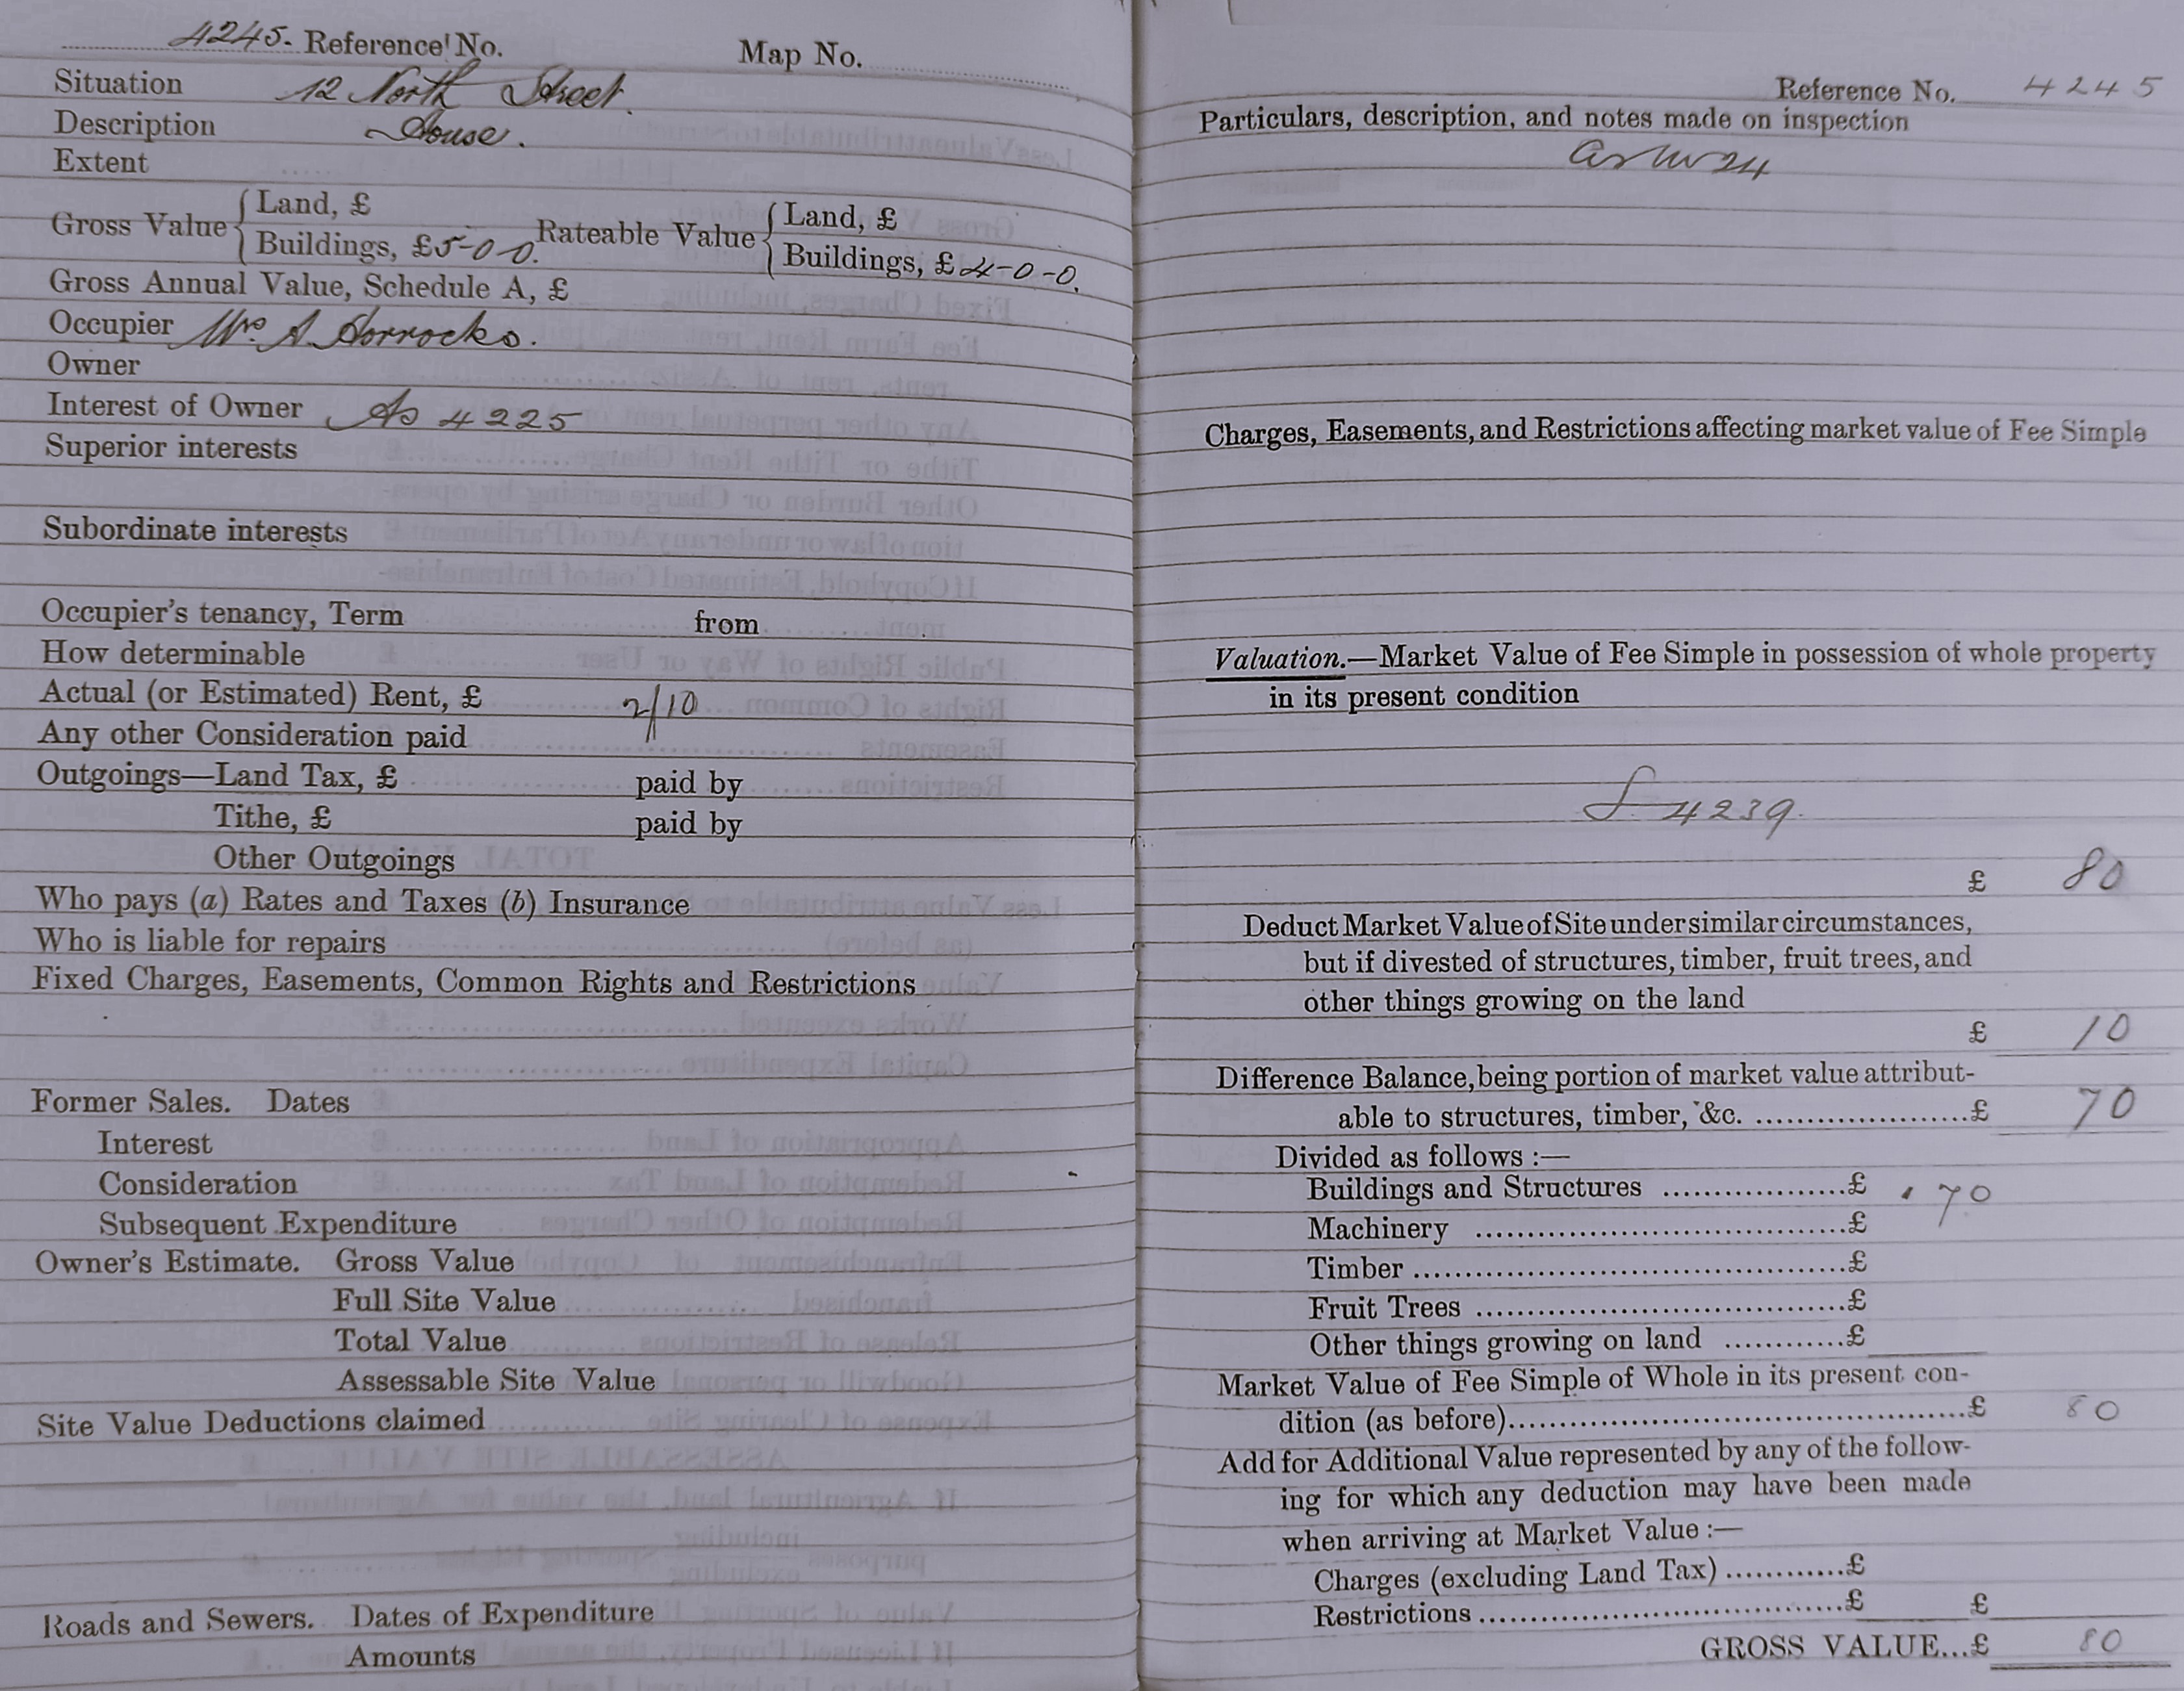 4245. Reference No. Map No.
Situation 12 North Street.
Description House.
Extent
Gross Value { Land, £
Buildings, £5-0-0. Rateable Value { Land, £
Buildings, £4-0-0.
Gross Annual Value, Schedule A, £
Occupier Mrs A. Horrocks.
Owner
Interest of Owner As 4225
Superior interests
Subordinate interests
Occupier's tenancy, Term from
How determinable
Actual (or Estimated) Rent, £ 2/10
Any other Consideration paid
Outgoings—Land Tax, £ paid by
Tithe, £ paid by
Other Outgoings
Who pays (a) Rates and Taxes (b) Insurance
Who is liable for repairs
Fixed Charges, Easements, Common Rights and Restrictions
Former Sales. Dates
Interest
Consideration
Subsequent Expenditure
Owner's Estimate. Gross Value
Full Site Value
Total Value
Assessable Site Value
Site Value Deductions claimed
Roads and Sewers. Dates of Expenditure
Amounts
Reference No. 4245
Particulars, description, and notes made on inspection
Charges, Easements, and Restrictions affecting market value of Fee Simple
Valuation.—Market Value of Fee Simple in possession of whole property
in its present condition
4239.
£ 80
Deduct Market Value of Site under similar circumstances,
but if divested of structures, timber, fruit trees, and
other things growing on the land
£ 10
Difference Balance, being portion of market value attribut-
able to structures, timber, &c. ....................£ 70
Divided as follows :—
Buildings and Structures ..................£ 70
Machinery ....................................£
Timber ..........................................£
Fruit Trees ....................................£
Other things growing on land ............£
Market Value of Fee Simple of Whole in its present con-
dition (as before)............................................£ 80
Add for Additional Value represented by any of the follow-
ing for which any deduction may have been made
when arriving at Market Value :—
Charges (excluding Land Tax) ............£
Restrictions ....................................£ £
GROSS VALUE...£ 80